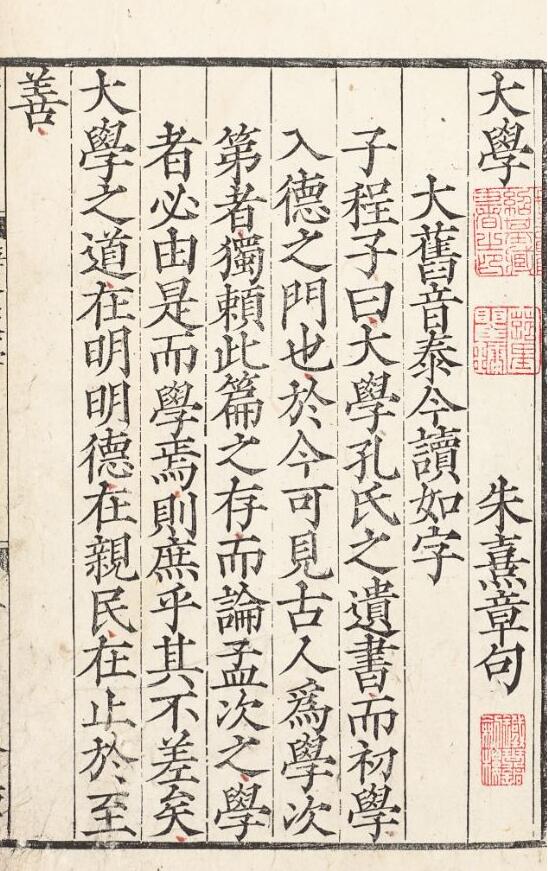 大學 朱熹章句
大舊音泰今讀如字
子程子曰大學孔氏之遺書而初學
入德之門也於今可見古人爲學次
第者獨頼此篇之存而論孟次之學
者必由是而學焉則庶乎其不差矣
大學之道在明明德在親民在止於至
善